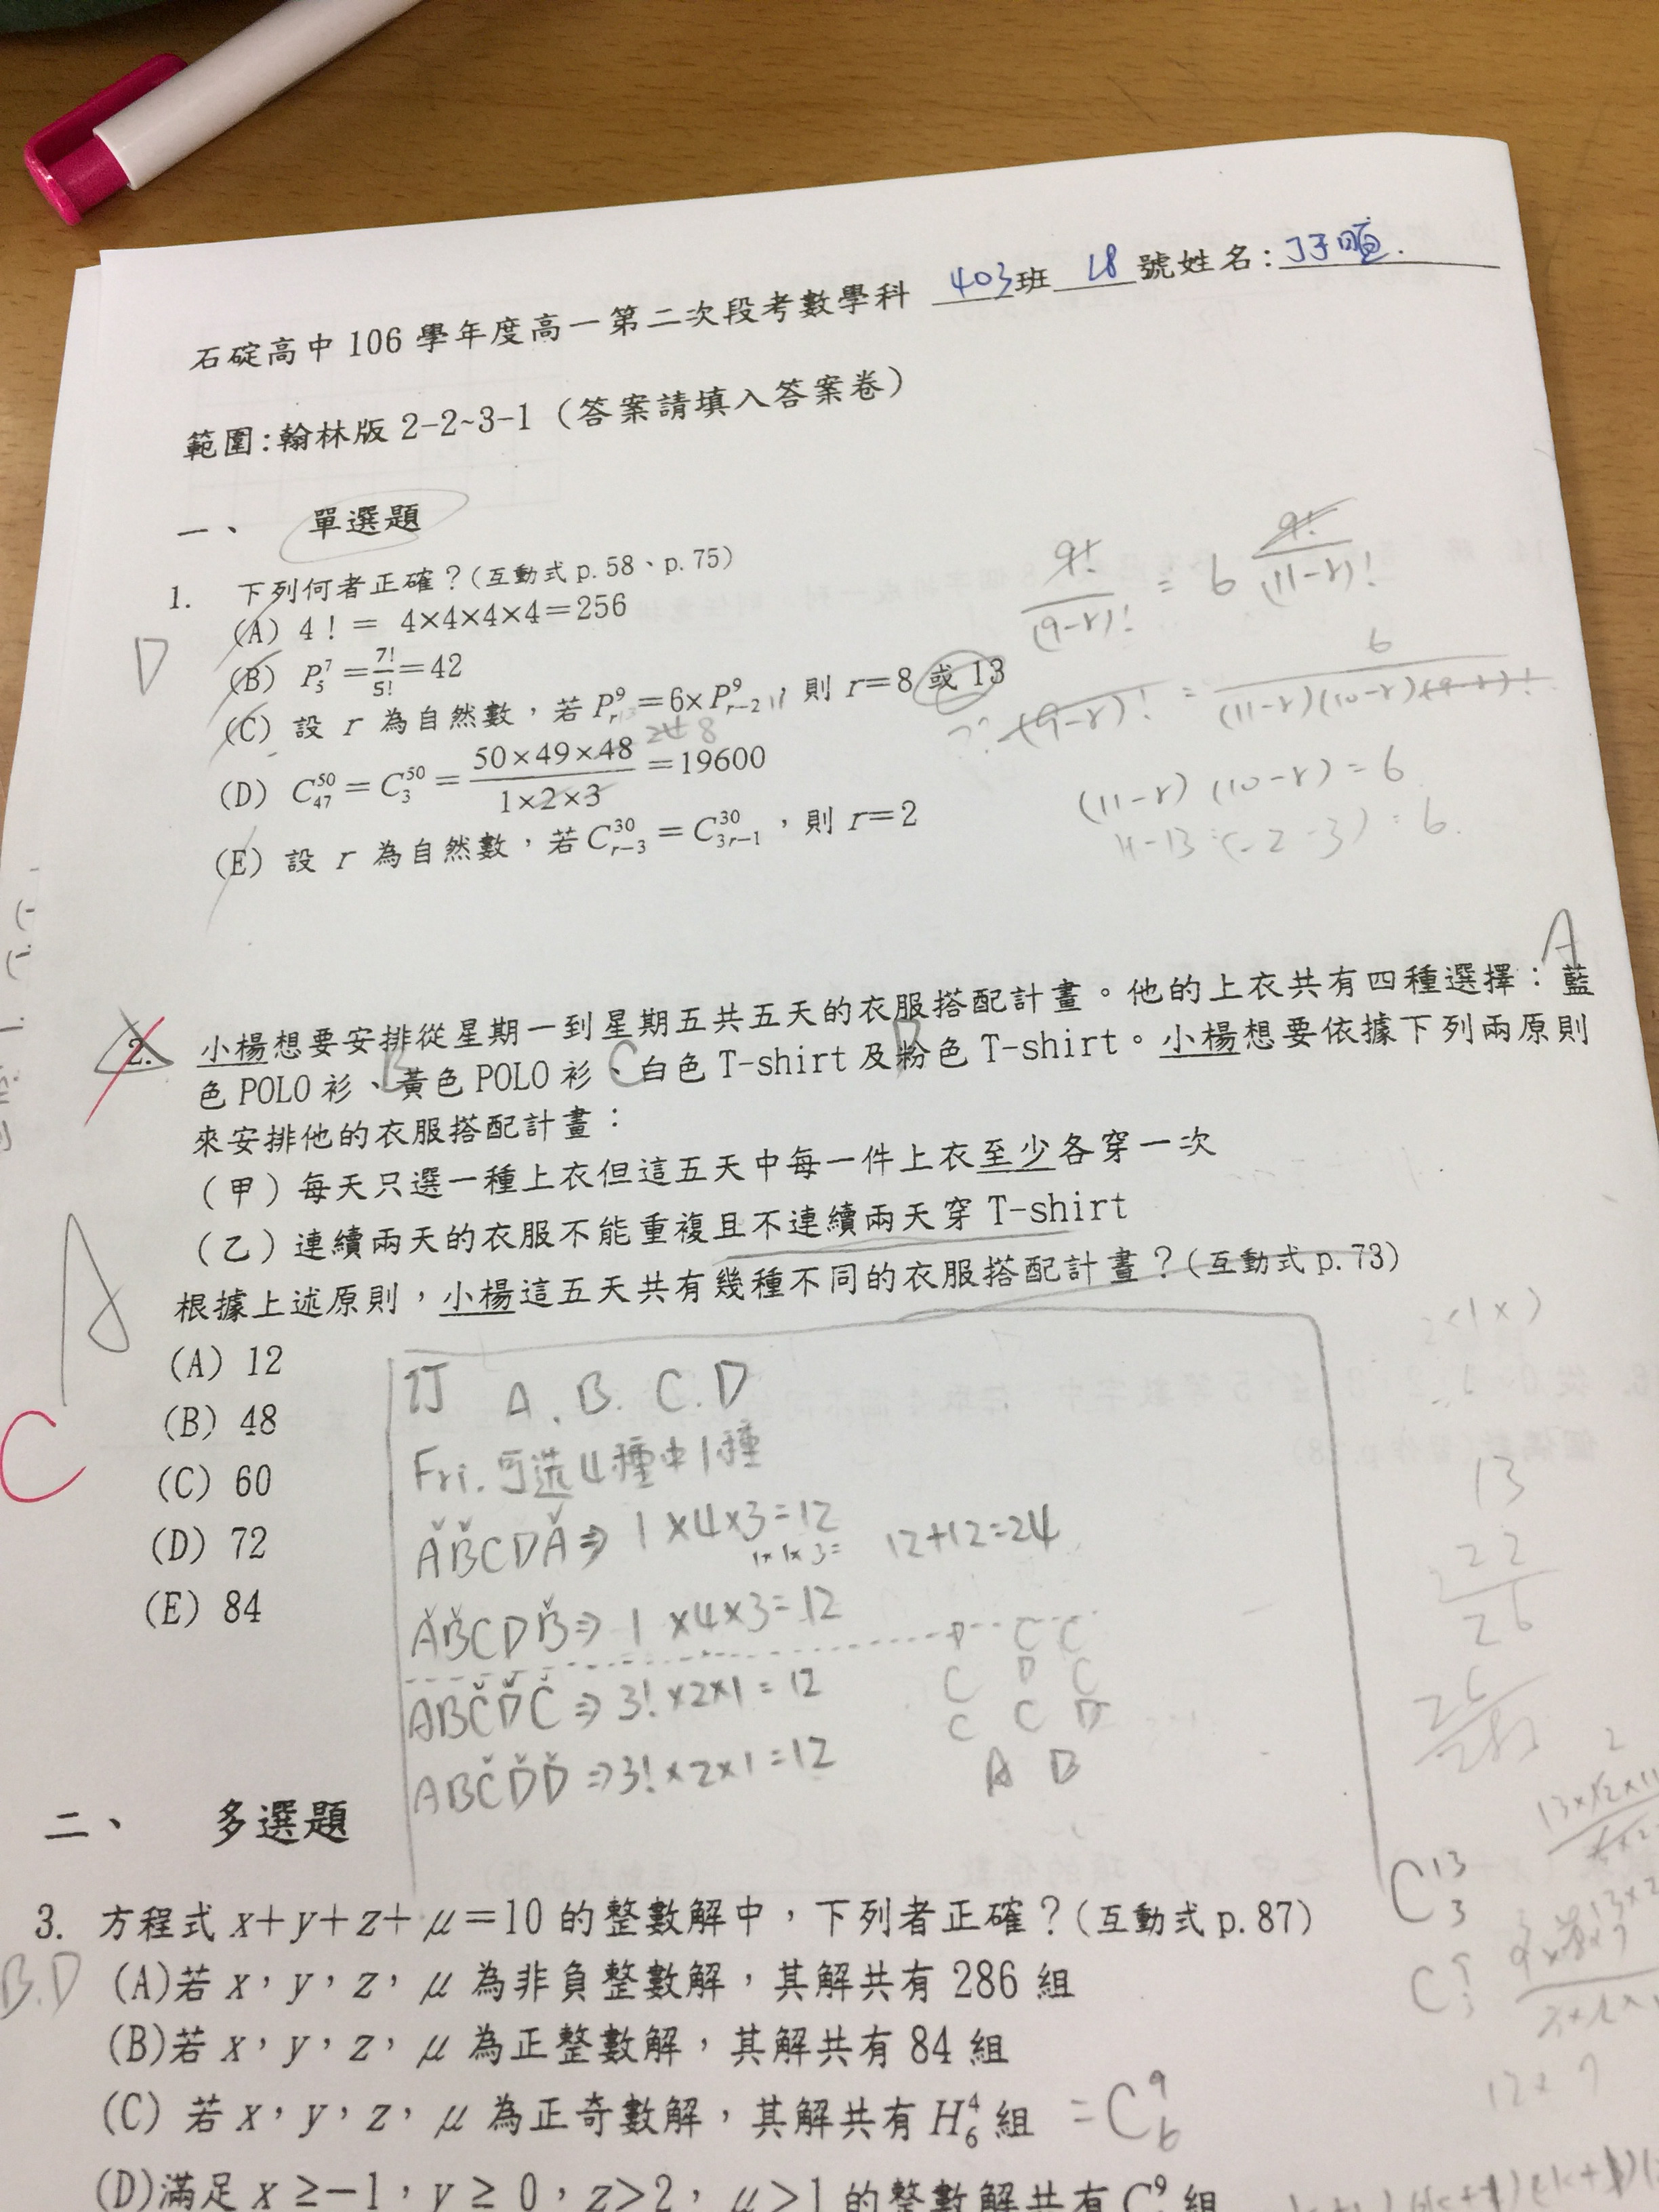 石碇高中 106 學年度高一第二次段考數學科 403班 18 號姓名:
範圍:翰林版 2-2~3-1 (答案請填入答案卷)
一、 單選題
1. 下列何者正確?(互動式 p.58、p.75)
D
(A) 4! = 4×4×4×4=256
(B) P⁷₅ = 7!/5! = 42
(C) 設 r 為自然數,若 P⁹ᵣ=6×P⁹ᵣ₋₂,則 r=8 或 13
(D) C⁵⁰₄₇ = C⁵⁰₃ = 50×49×48/1×2×3 =19600
(E) 設 r 為自然數,若 C³⁰ᵣ₋₃ = C³⁰₃ᵣ₋₁,則 r=2
9!/(9-r)! = 6 9!/(11-r)!
(9-r)! = 6/(11-r)(10-r)(9-r)!
(11-r)(10-r)=6
2. 小楊想要安排從星期一到星期五共五天的衣服搭配計畫。他的上衣共有四種選擇:藍
色 POLO 衫、黃色 POLO 衫、白色 T-shirt 及粉色 T-shirt。小楊想要依據下列兩原則
來安排他的衣服搭配計畫:
(甲)每天只選一種上衣但這五天中每一件上衣至少各穿一次
(乙)連續兩天的衣服不能重複且不連續兩天穿 T-shirt
根據上述原則,小楊這五天共有幾種不同的衣服搭配計畫?(互動式 p.73)
A
C
(A) 12
(B) 48
(C) 60
(D) 72
(E) 84
訂 A. B. C. D
Fri. 可选 4種中1種
ABCDA ⇒ 1×4×3=12 12+12=24
1×1×3=
ABCDB ⇒ 1×4×3=12
ABCDC ⇒ 3!×2×1=12
ABCDD ⇒ 3!×2×1=12
D C C
C D C
C C D
A B
二、 多選題
3. 方程式 x+y+z+μ=10 的整數解中,下列者正確?(互動式 p.87)
B.D
(A)若 x,y,z,μ 為非負整數解,其解共有 286 組
(B)若 x,y,z,μ 為正整數解,其解共有 84 組
(C) 若 x,y,z,μ 為正奇數解,其解共有 H⁴₆ 組 =C⁹₆
(D)滿足 x≥-1,y≥0,z>2,μ>1 的整數解共有 C⁹ 組
C¹³₃